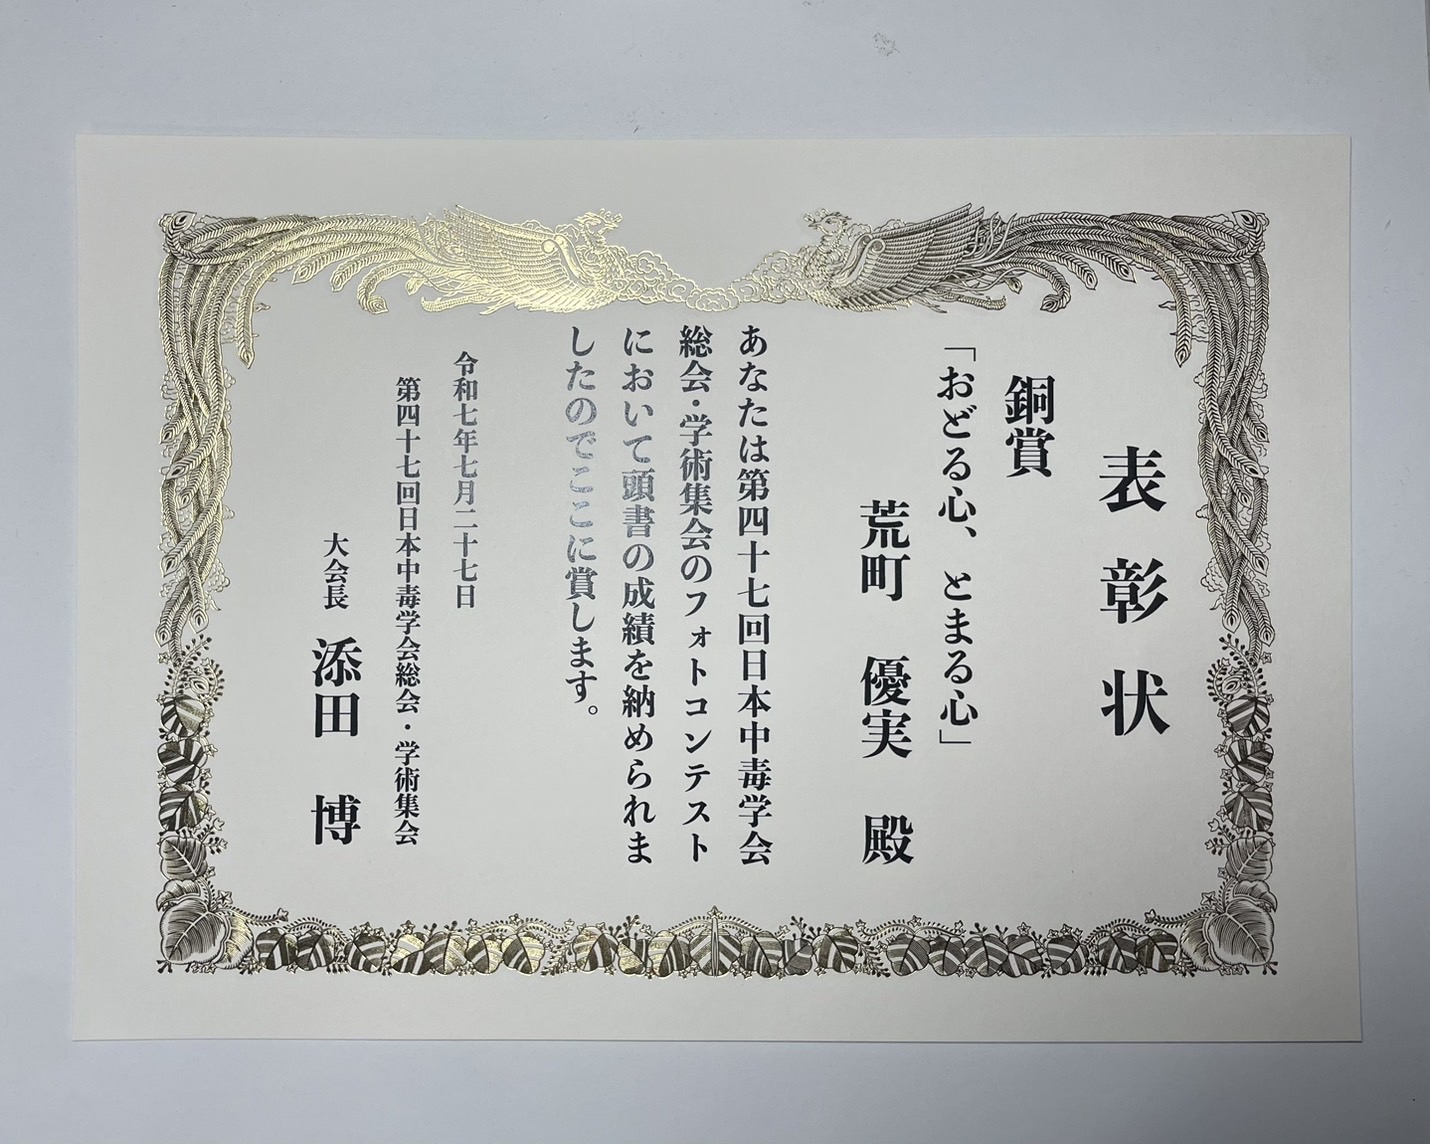 表彰状
銅賞
「おどる心、とまる心」
荒町 優実 殿
あなたは第四十七回日本中毒学会
総会・学術集会のフォトコンテスト
において頭書の成績を納められま
したのでここに賞します。
令和七年七月二十七日
第四十七回日本中毒学会総会・学術集会
大会長 添田 博